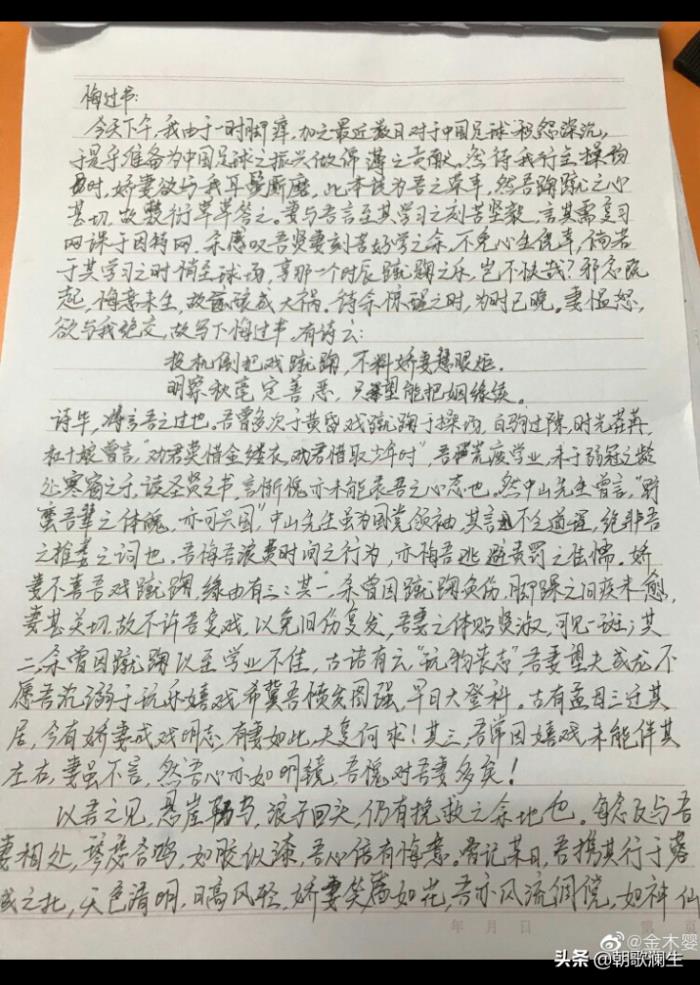 悔过书:
今天下午,我由于一时脚痒,加之最近数日对于中国足球积怨深沉,
于是乎准备为中国足球之振兴做绵薄之贡献。奈待我行至操场
时,娇妻欲与我耳鬓厮磨,此本该为吾之荣幸,然吾蹴鞠之心
甚切,故敷衍草草答之。妻与吾言至其学习之刻苦坚毅,言其需复习
网课于因特网,余感叹吾贤妻刻苦好学之余,不免心生侥幸,倘若
于其学习之时俏至球场,享那一个时辰蹴鞠之乐,岂不快哉?邪念既
起,悔意未生,故酿成大祸。待余惊醒之时,为时已晚。妻愠怒,
欲与我绝交,故写下悔过书。有诗云:
投机倒把戏蹴鞠,不料娇妻慧眼炬.
明察秋毫定善恶,只望能把姻缘续。
诗毕,将言吾之过也。吾曾多次于黄昏戏蹴鞠于操场,白驹过隙,时光荏苒,
杜十娘曾言,"劝君莫惜金缕衣,劝君惜取少年时",吾荒废学业,未于弱冠之龄
处寒窗之乐,读圣贤之书,言惭愧亦未能表吾之心态也。然中山先生曾言,"野
蛮吾辈之体魄,亦可兴国",中山先生虽为国党领袖,其言不乏道理,绝非吾
之推诿之词也。吾悔吾浪费时间之行为,亦悔吾逃避责罚之怯懦。娇
妻不喜吾戏蹴鞠,缘由有三:其一,余曾因蹴鞠负伤,脚踝之旧疾未愈,
妻甚关切,故不许吾复戏,以免旧伤复发,吾妻之体贴贤淑,可见一斑;其
二,余曾因蹴鞠以至学业不佳,古语有云"玩物丧志",吾妻望夫成龙,不
愿吾沉溺于玩乐嬉戏,希冀吾愤发图强,早日大登科。古有孟母三迁其
居,今有娇妻戒戏明志,有妻如此,夫复何求!其三,吾常因嬉戏,未能伴其
左右,妻虽不言,然吾心亦如明镜,吾愧对吾妻多矣!
以吾之见,悬崖勒马,浪子回头,仍有挽救之余地也。每念及与吾
妻相处,琴瑟合鸣,如胶似漆,吾心倍有悔意。尝记某日,吾携其行于蓉
城之北,天色清明,日高风轻,娇妻笑靥如花,吾亦风流倜傥,如神仙
年 月 日
第 页
@金木婴
头条 @朝歌澜生